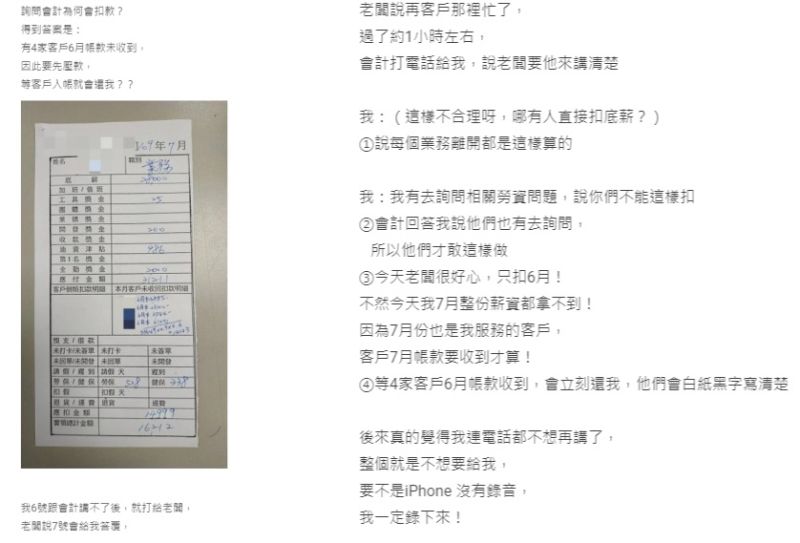 詢問會計為何會扣款？
得到答案是：
有4家客戶6月帳款未收到，
因此要先壓款，
等客戶入帳就會還我？？
109年7月
姓名 職別 業務
底薪
加班/值班
工具獎金 25
團體獎金
業績獎金
開發獎金 200
收款獎金
油資津貼 986
第1名獎金
全勤獎金 2000
應付金額 31211
客戶倒賬扣款明細 本月客戶未收回扣款明細
預支/借款
未打卡/未簽單 未打卡 未簽單
未回單/未開發 未回單 未開發
請假/遲到 請假 天 遲到
勞保/健保 勞保 健保 338
扣假 扣假 天
退貨/運費 退貨 運費
應扣金額 14999
實領總計金額 16212
我6號跟會計講不了後，就打給老闆，
老闆說7號會給我答覆，
老闆說再客戶那裡忙了，
過了約1小時左右，
會計打電話給我，說老闆要他來講清楚
我：（這樣不合理呀，哪有人直接扣底薪？）
①說每個業務離開都是這樣算的
我：我有去詢問相關勞資問題，說你們不能這樣扣
②會計回答我說他們也有去詢問，
所以他們才敢這樣做
③今天老闆很好心，只扣6月！
不然今天我7月整份薪資都拿不到！
因為7月份也是我服務的客戶，
客戶7月帳款要收到才算！
④等4家客戶6月帳款收到，會立刻還我，他們會白紙黑字寫清楚
後來真的覺得我連電話都不想再講了，
整個就是不想要給我，
要不是iPhone 沒有錄音，
我一定錄下來！